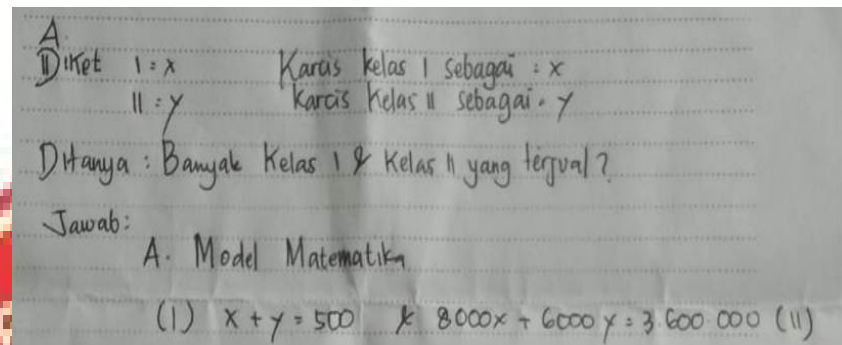 A.
Diket I = x Karcis kelas I sebagai : x
II = y Karcis Kelas II sebagai = y
Ditanya : Banyak Kelas I & Kelas II yang terjual ?
Jawab:
A. Model Matematika
(I) x + y = 500 & 8000x + 6000y = 3.600.000 (II)